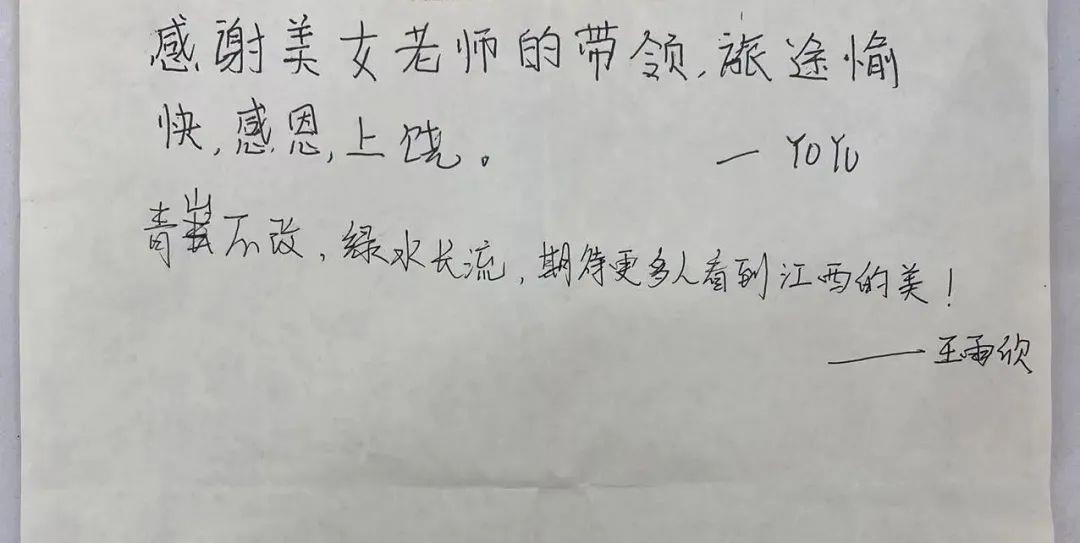 感谢美女老师的带领,旅途愉
快,感恩,上饶。 — YOYO
青山不改,绿水长流,期待更多人看到江西的美!
——王雨欣